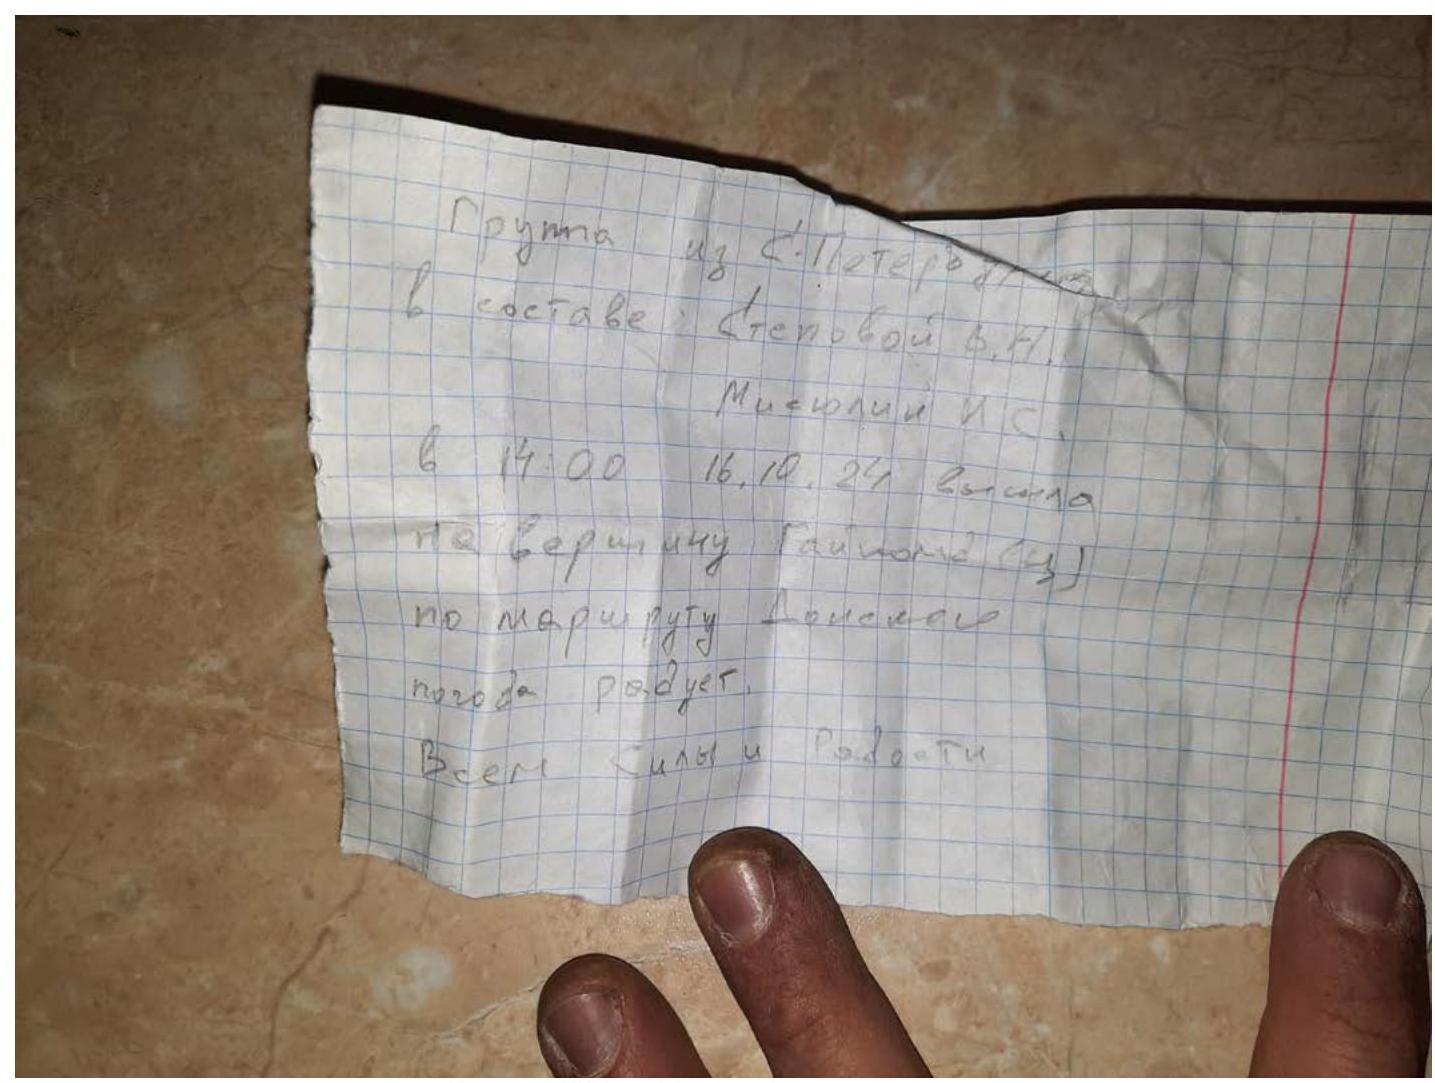 Группа из С.Петербурга
в составе: Степовой В.Н.
Мисюлин И С.
в 14:00 16.10.24 вышла
на вершину Гайкомд (ц)
по маршруту Донского
погода радует.
Всем Силы и Радости